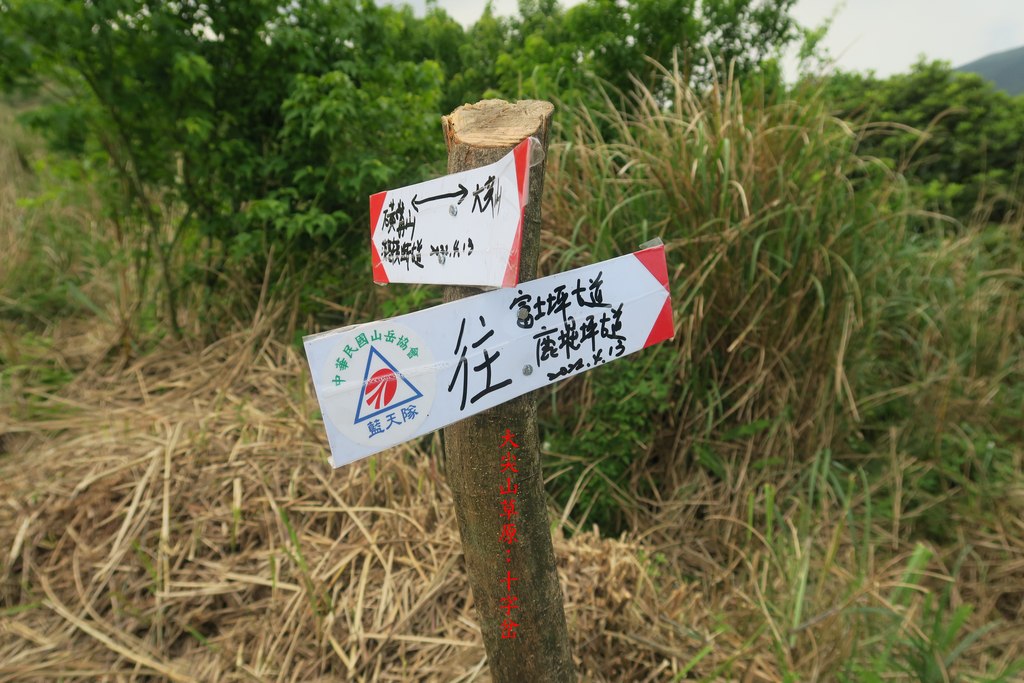 磺嘴山 ⟷ 大尖山
2022.4.13
中華民國山岳協會
藍天隊
往
富士坪古道
鹿堀坪古道
2022.4.13
大尖山草原：十字岔